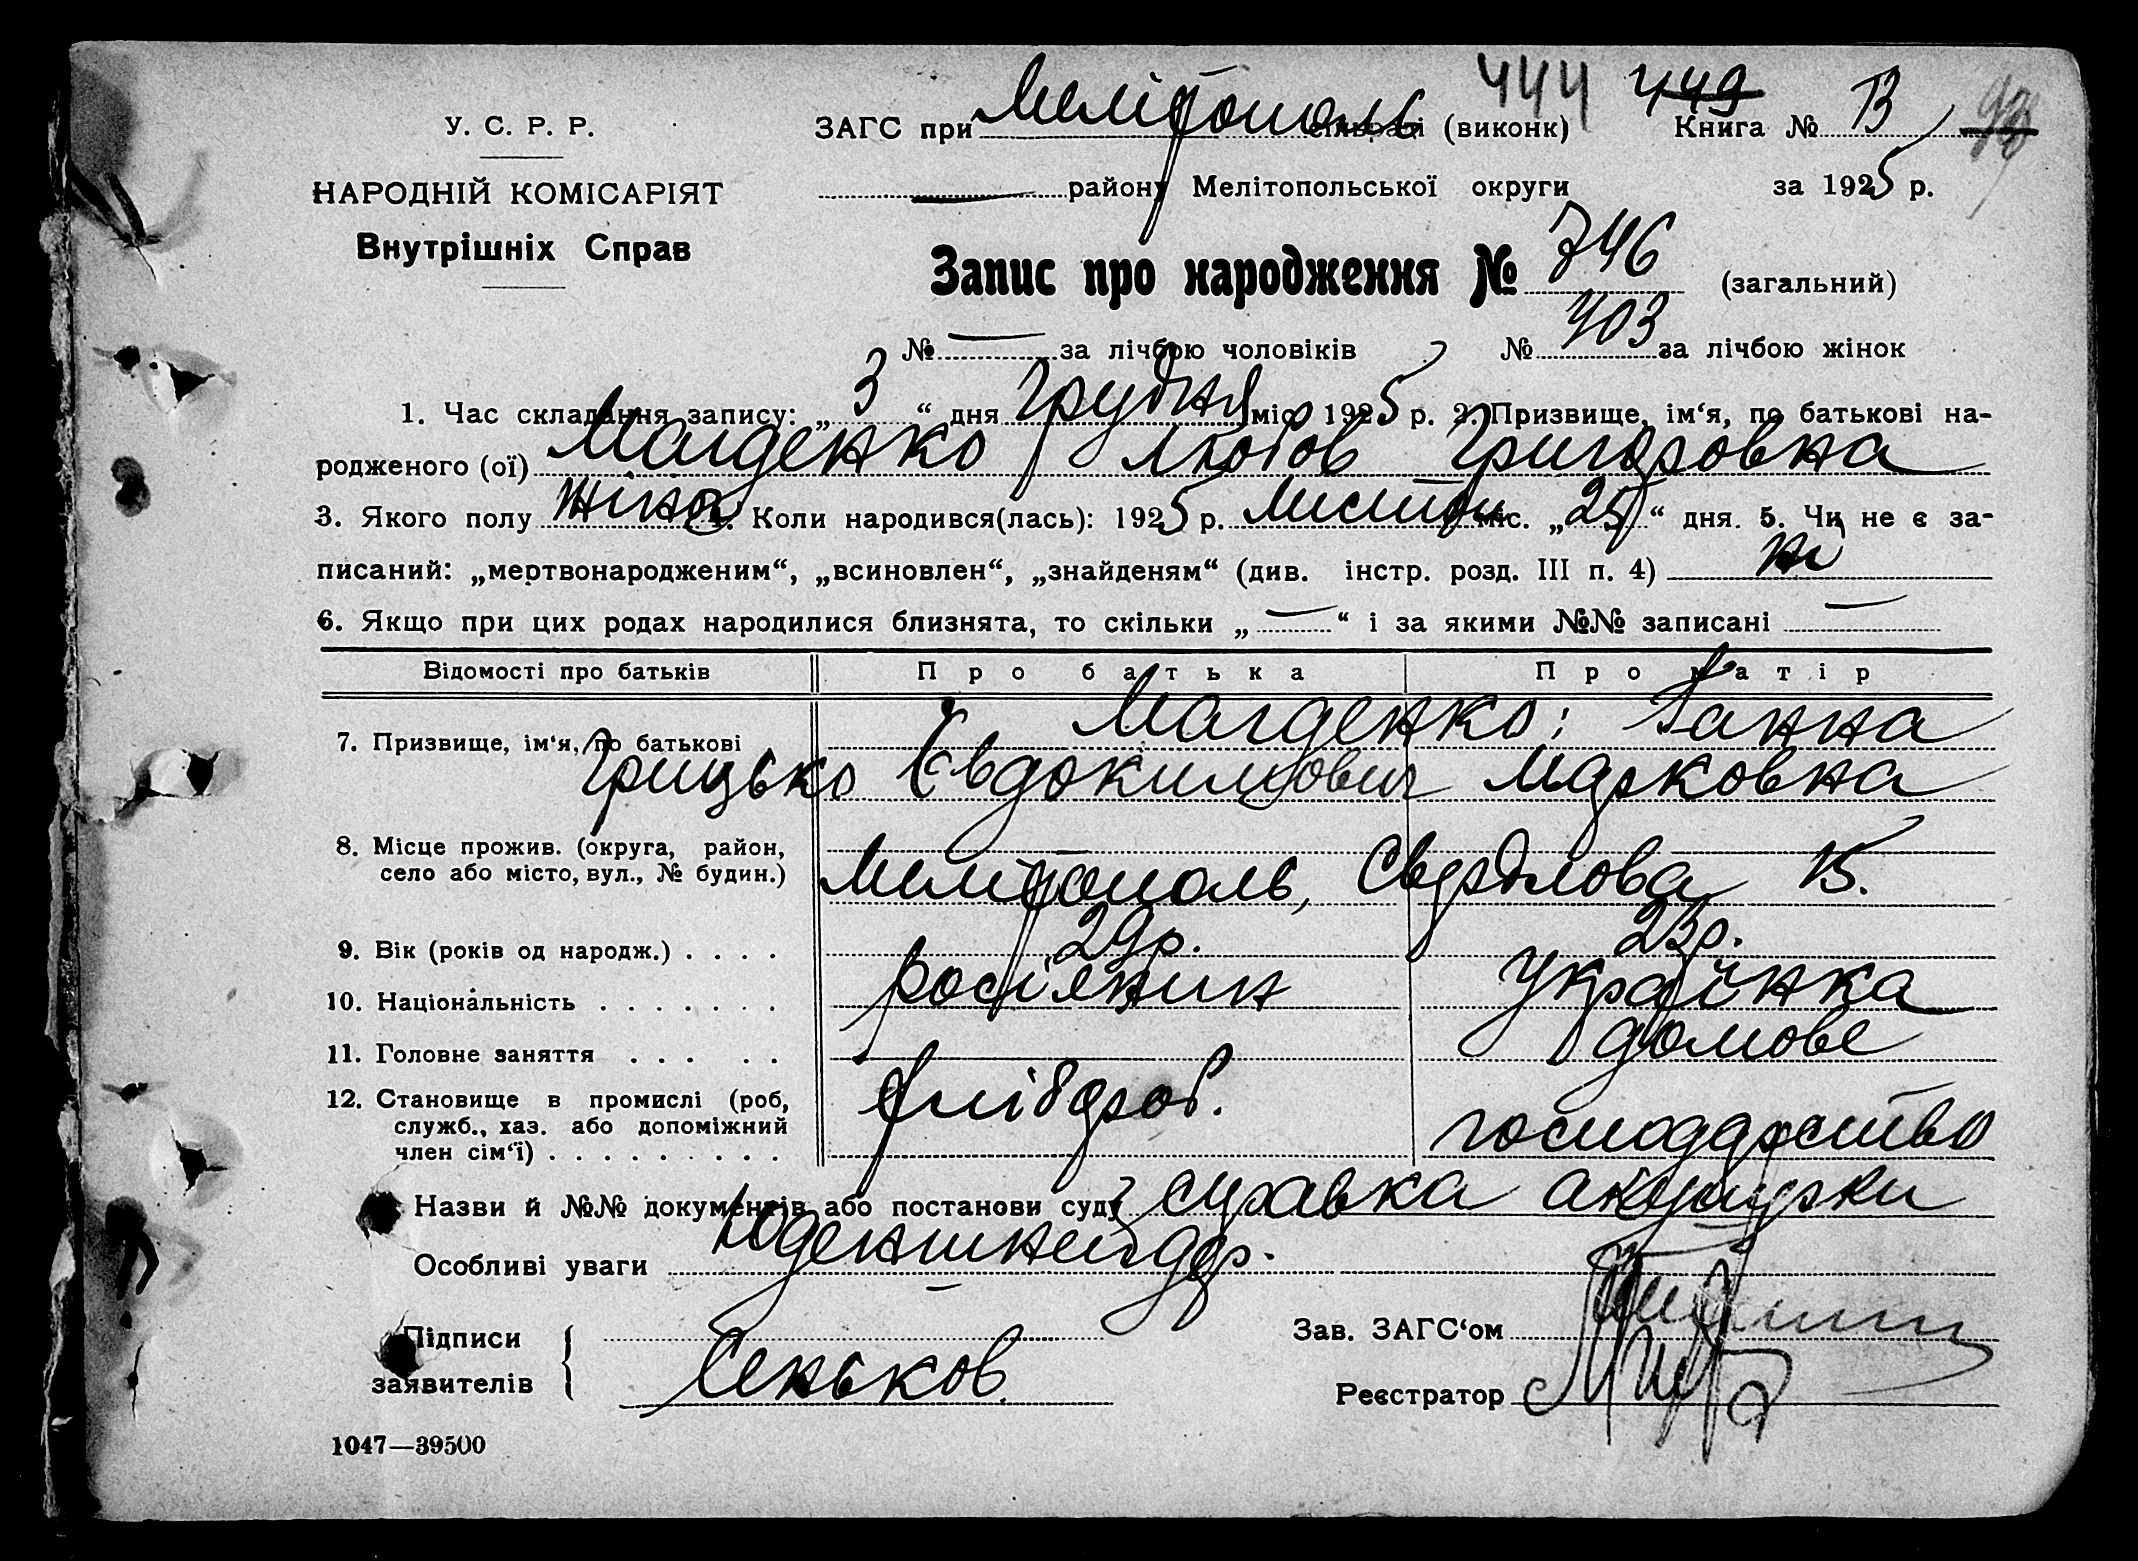 444 449
У. С. Р. Р.
ЗАГС при Мелітополь сільраді (виконк) Книга № В
НАРОДНІЙ КОМІСАРІЯТ
— району Мелітопольської округи за 1925 р.
Внутрішніх Справ
Запис про народження № 746 (загальний)
№ — за лічбою чоловіків № 403 за лічбою жінок
1. Час складання запису: „ 3 “ дня Грудня міс. 1925 р. 2. Призвище, ім‘я, по батькові на-
родженого (ої) Магденко Любов Григоровна
3. Якого полу жіноч 4. Коли народився(лась): 1925 р. листоп міс. „ 25 “ дня. 5. Чи не є за-
писаний: „мертвонародженим“, „всиновлен“, „знайденям“ (див. інстр. розд. III п. 4) ні
6. Якщо при цих родах народилися близнята, то скільки „ — “ і за якими №№ записані —
Відомості про батьків Про батька Про матір
7. Призвище, ім‘я, по батькові Магденко; Ганна
Грицько Євдокимович Марковна
8. Місце прожив. (округа, район,
село або місто, вул., № будин.) Мелітополь, Свердлова 15.
9. Вік (років од народж.) . . . . 29 р. 23 р.
10. Національність . . . . . . . росіянин Українка
11. Головне заняття . . . . . домове
12. Становище в промислі (роб, хлібороб.
служб., хаз. або допоміжний господарство
член сім‘ї) . . . . . . . . .
Назви й №№ документів або постанови суду справка акушерки
Особливі уваги Юденшнейдер.
Підписи Зав. ЗАГС‘ом
заявителів Сеньков. Реєстратор
1047—39500